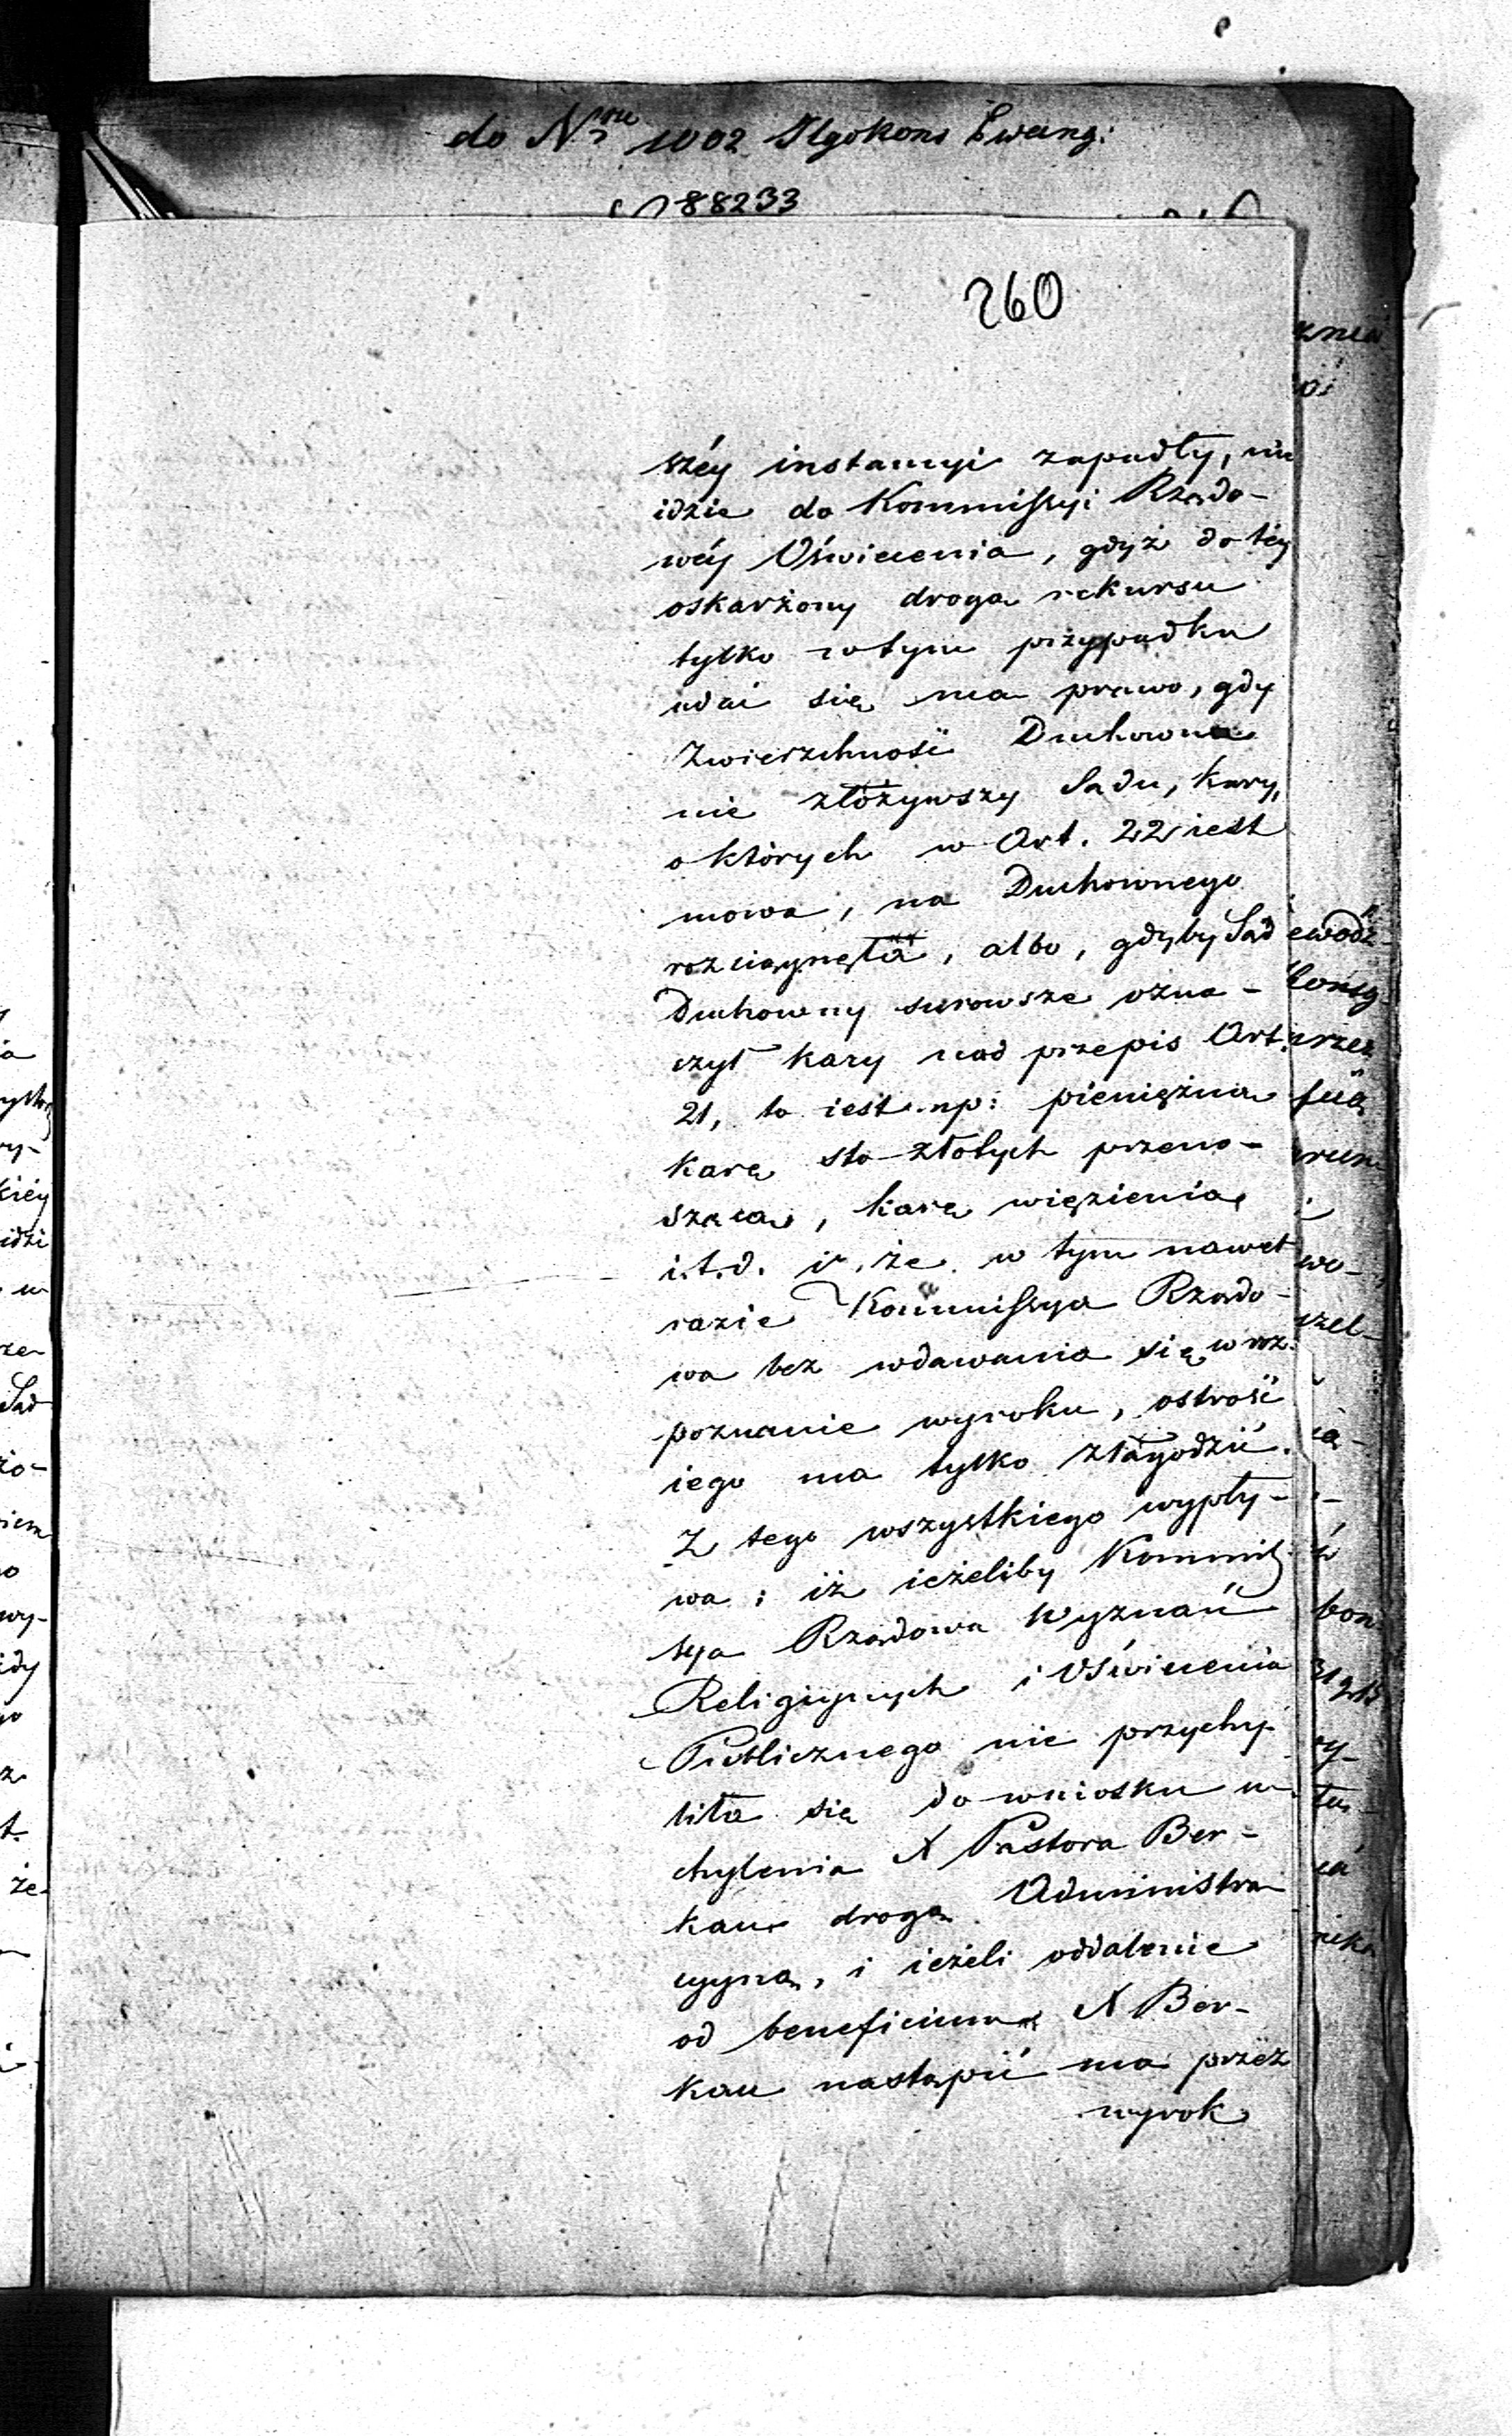 do Nru 1002 Ewang:
88233
260
széy instancyi zapadły, nie
idzie do Kommissyi Rządo-
wéy Oświecenia, gdyż do téy
oskarżony drogą rekursu
tylko w tym przypadku
udać się ma prawo, gdy
Zwierzchność Duchowna
nie złożywszy Sądu, kary,
o których w Art. 22 iest
mowa, na Duchownego
rozciągnęła, albo, gdyby Sąd
Duchowny surowsze ozna-
czył kary nad przepis Art.
21, to iest np: pieniężną
karę sto złotych przeno-
szącą, karę więzienia
i.t.d. i że w tym nawet
razie Kommissya Rządo-
wa bez wdawania się w roz-
poznanie wyroku, ostrość
iego ma tylko złagodzić.
Z tego wszystkiego wypły-
wa: iż ieżeliby Kommis-
sya Rządowa Wyznań
Religiynych i Oświecenia
Publicznego nie przychy-
liła się do wniosku u-
chylenia X Pastora Ber-
kau drogą Administra
cyyną, i ieżeli oddalenie
od beneficium X Ber-
kau nastąpić ma przez
wyrok